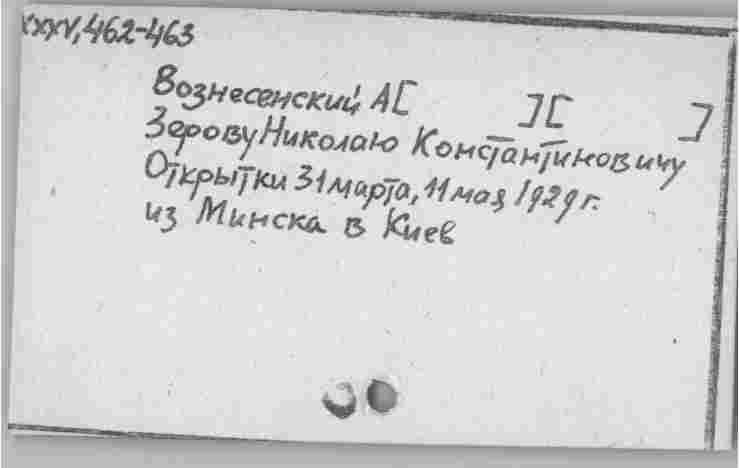 XXXV, 462-463
Вознесенский А[ ][ ]
Зерову Николаю Константиновичу
Открытки 31 марта, 11 мая 1929 г.
из Минска в Киев